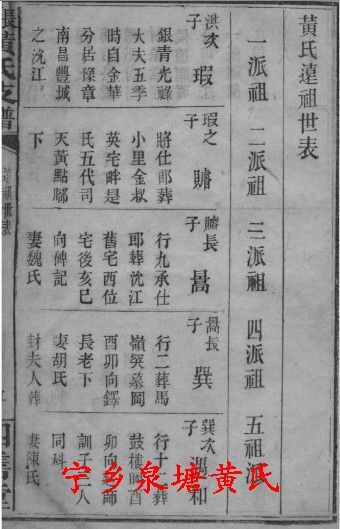 黃氏遠祖世表
一派祖 二派祖 三派祖 四派祖 五派祖
洪次子 瑕
銀青光祿
大夫五季
時自金華
分居豫章
南昌豐城
之沈江
瑕之子
將仕郎葬
小里金叔
英宅畔是
氏五代司
天黃點鄢
下
長子 暠
行九承仕
郎葬沈江
舊宅酉位
宅後亥巳
向俾記
妻魏氏
暠長子 巽
行二葬馬
嶺突墓岡
酉卯向鐸
長老下
妻胡氏
封夫人葬
巽次子 和
行十二葬
鼓樓酉
卯向師
訓子三人
同科
妻陳氏
黃氏支譜
遠祖世表
宁乡泉塘黄氏